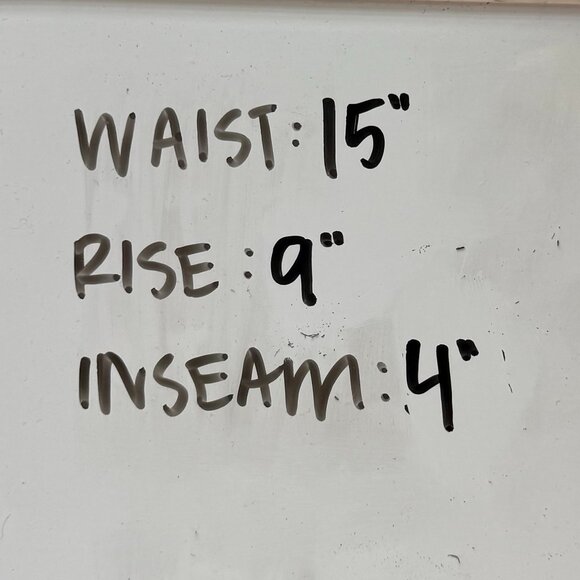 WAIST: 15"
RISE: 9"
INSEAM: 4"